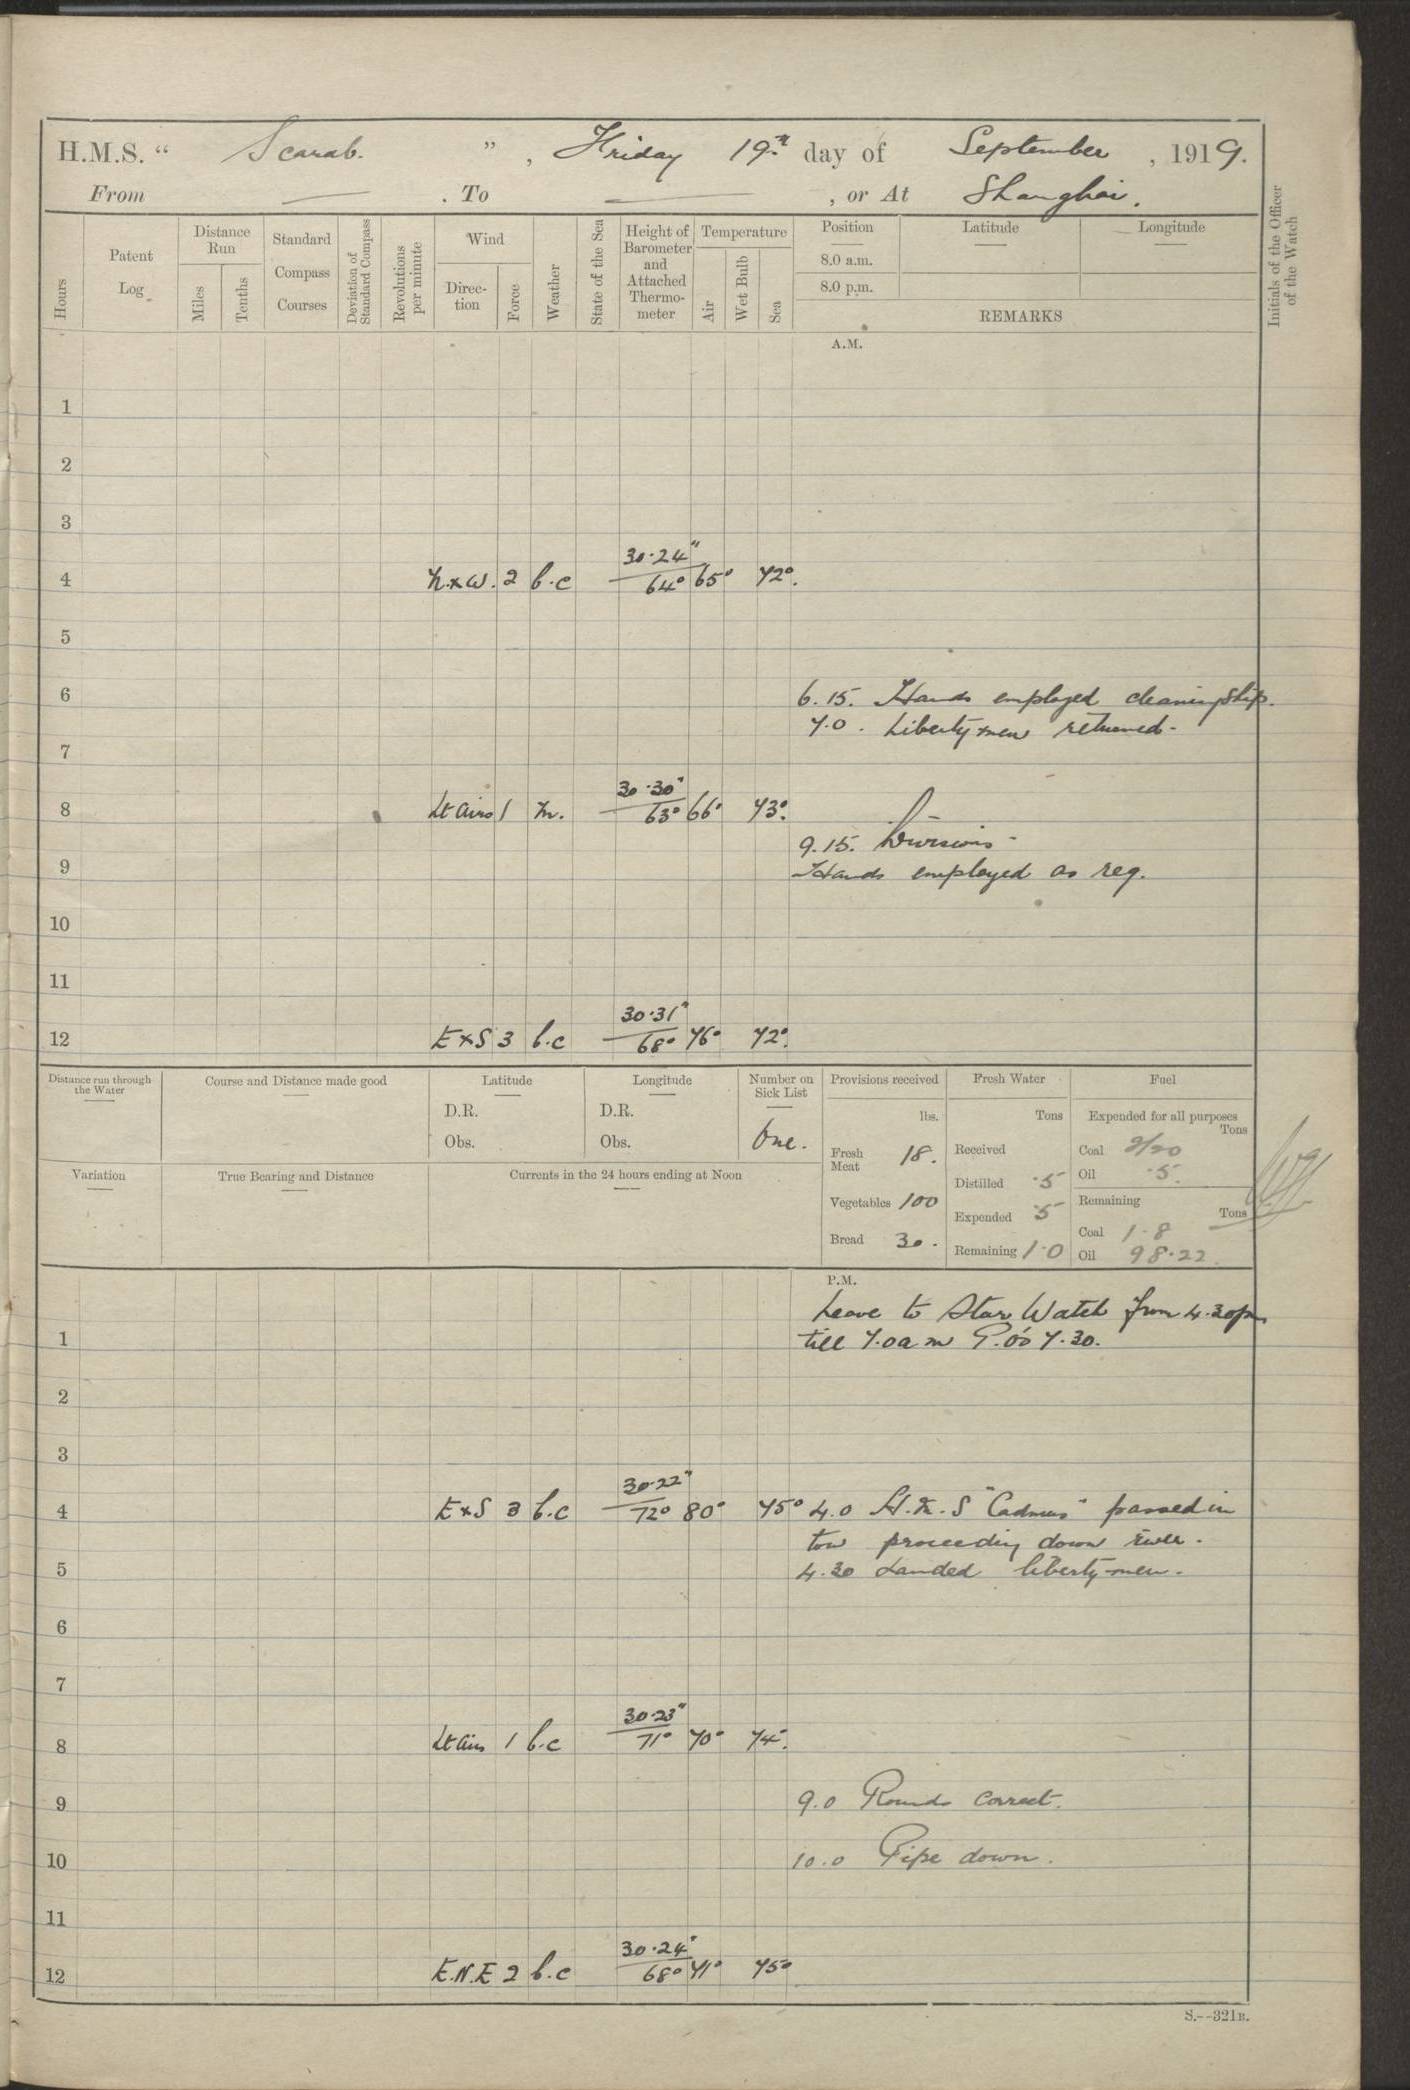 H.M.S. “ Scarab. ” , Friday 19th day of September , 1919.
From — . To — , or At Shanghai.
Hours
Patent Log
Distance Run
Miles
Tenths
Standard Compass Courses
Deviation of Standard Compass
Revolutions per minute
Wind
Direc-tion
Force
Weather
State of the Sea
Height of Barometer and Attached Thermo-meter
Temperature
Air
Wet Bulb
Sea
Position
8.0 a.m.
8.0 p.m.
Latitude
Longitude
REMARKS
Initials of the Officer of the Watch
A.M.
1
2
3
4 N.xW. 2 b.c 30.24" 64° 65° 72°.
5
6 6.15. Hands employed cleaning ship.
7.0. Liberty-men returned.
7
8 Lt airs 1 m. 30.30" 63° 66° 73°.
9.15. Divisions.
9 Hands employed as req.
10
11
12 ExS 3 b.c 30.31" 68° 76° 72°.
Distance run through the Water
Course and Distance made good
Latitude
D.R.
Obs.
Longitude
D.R.
Obs.
Number on Sick List
One.
Provisions received
lbs.
Fresh Meat 18.
Vegetables 100
Bread 30.
Fresh Water
Tons
Received
Distilled .5
Expended .5
Remaining 1.0
Fuel
Expended for all purposes
Tons
Coal 2/20
Oil .5.
Remaining
Tons
Coal 1.8
Oil 98.22
Variation
True Bearing and Distance
Currents in the 24 hours ending at Noon
P.M.
Leave to Star Watch from 4.30pm
1 till 7.0am P.O's 7.30.
2
3
4 ExS 3 b.c 30.22" 72° 80° 75° 4.0 H.M.S "Cadmus" passed in
tow proceeding down river.
5 4.30 Landed liberty-men.
6
7
8 Lt airs 1 b.c 30.23" 71° 70° 74°.
9 9.0 Rounds correct.
10 10.0 Pipe down.
11
12 E.N.E 2 b.c 30.24" 68° 71° 75°
S.--321B.